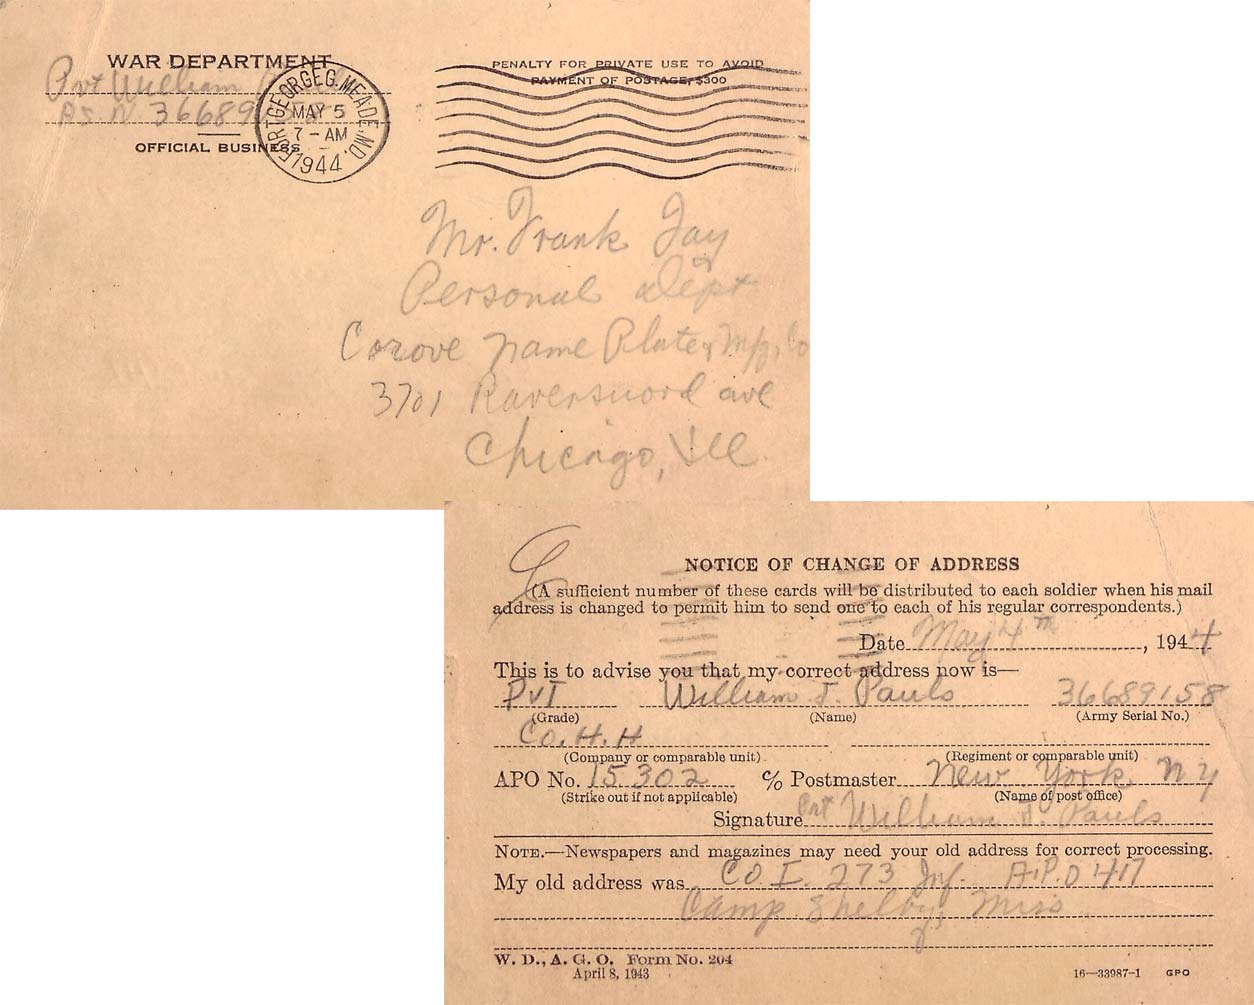 WAR DEPARTMENT
Pvt William
ASN 36689
OFFICIAL BUSINESS
FORT GEORGE G. MEADE, MD.
MAY 5
7-AM
1944
PENALTY FOR PRIVATE USE TO AVOID
PAYMENT OF POSTAGE, $300
Mr. Frank Jay
Personal Dept
name Plate Mfg. Co
3701 Ravenswood ave
Chicago, Ill
NOTICE OF CHANGE OF ADDRESS
(A sufficient number of these cards will be distributed to each soldier when his mail
address is changed to permit him to send one to each of his regular correspondents.)
Date May 4th, 1944
This is to advise you that my correct address now is—
Pvt William J. Pauls 36689158
(Grade) (Name) (Army Serial No.)
Co. H. H
(Company or comparable unit) (Regiment or comparable unit)
APO No. 15302 c/o Postmaster New York N Y
(Strike out if not applicable) (Name of post office)
Signature Pvt William J. Pauls
NOTE.—Newspapers and magazines may need your old address for correct processing.
My old address was Co I. 273 Inf. A.P.O 417
Camp Shelby, Miss
W. D., A. G. O. Form No. 204
April 8, 1943
16—33987-1 GPO